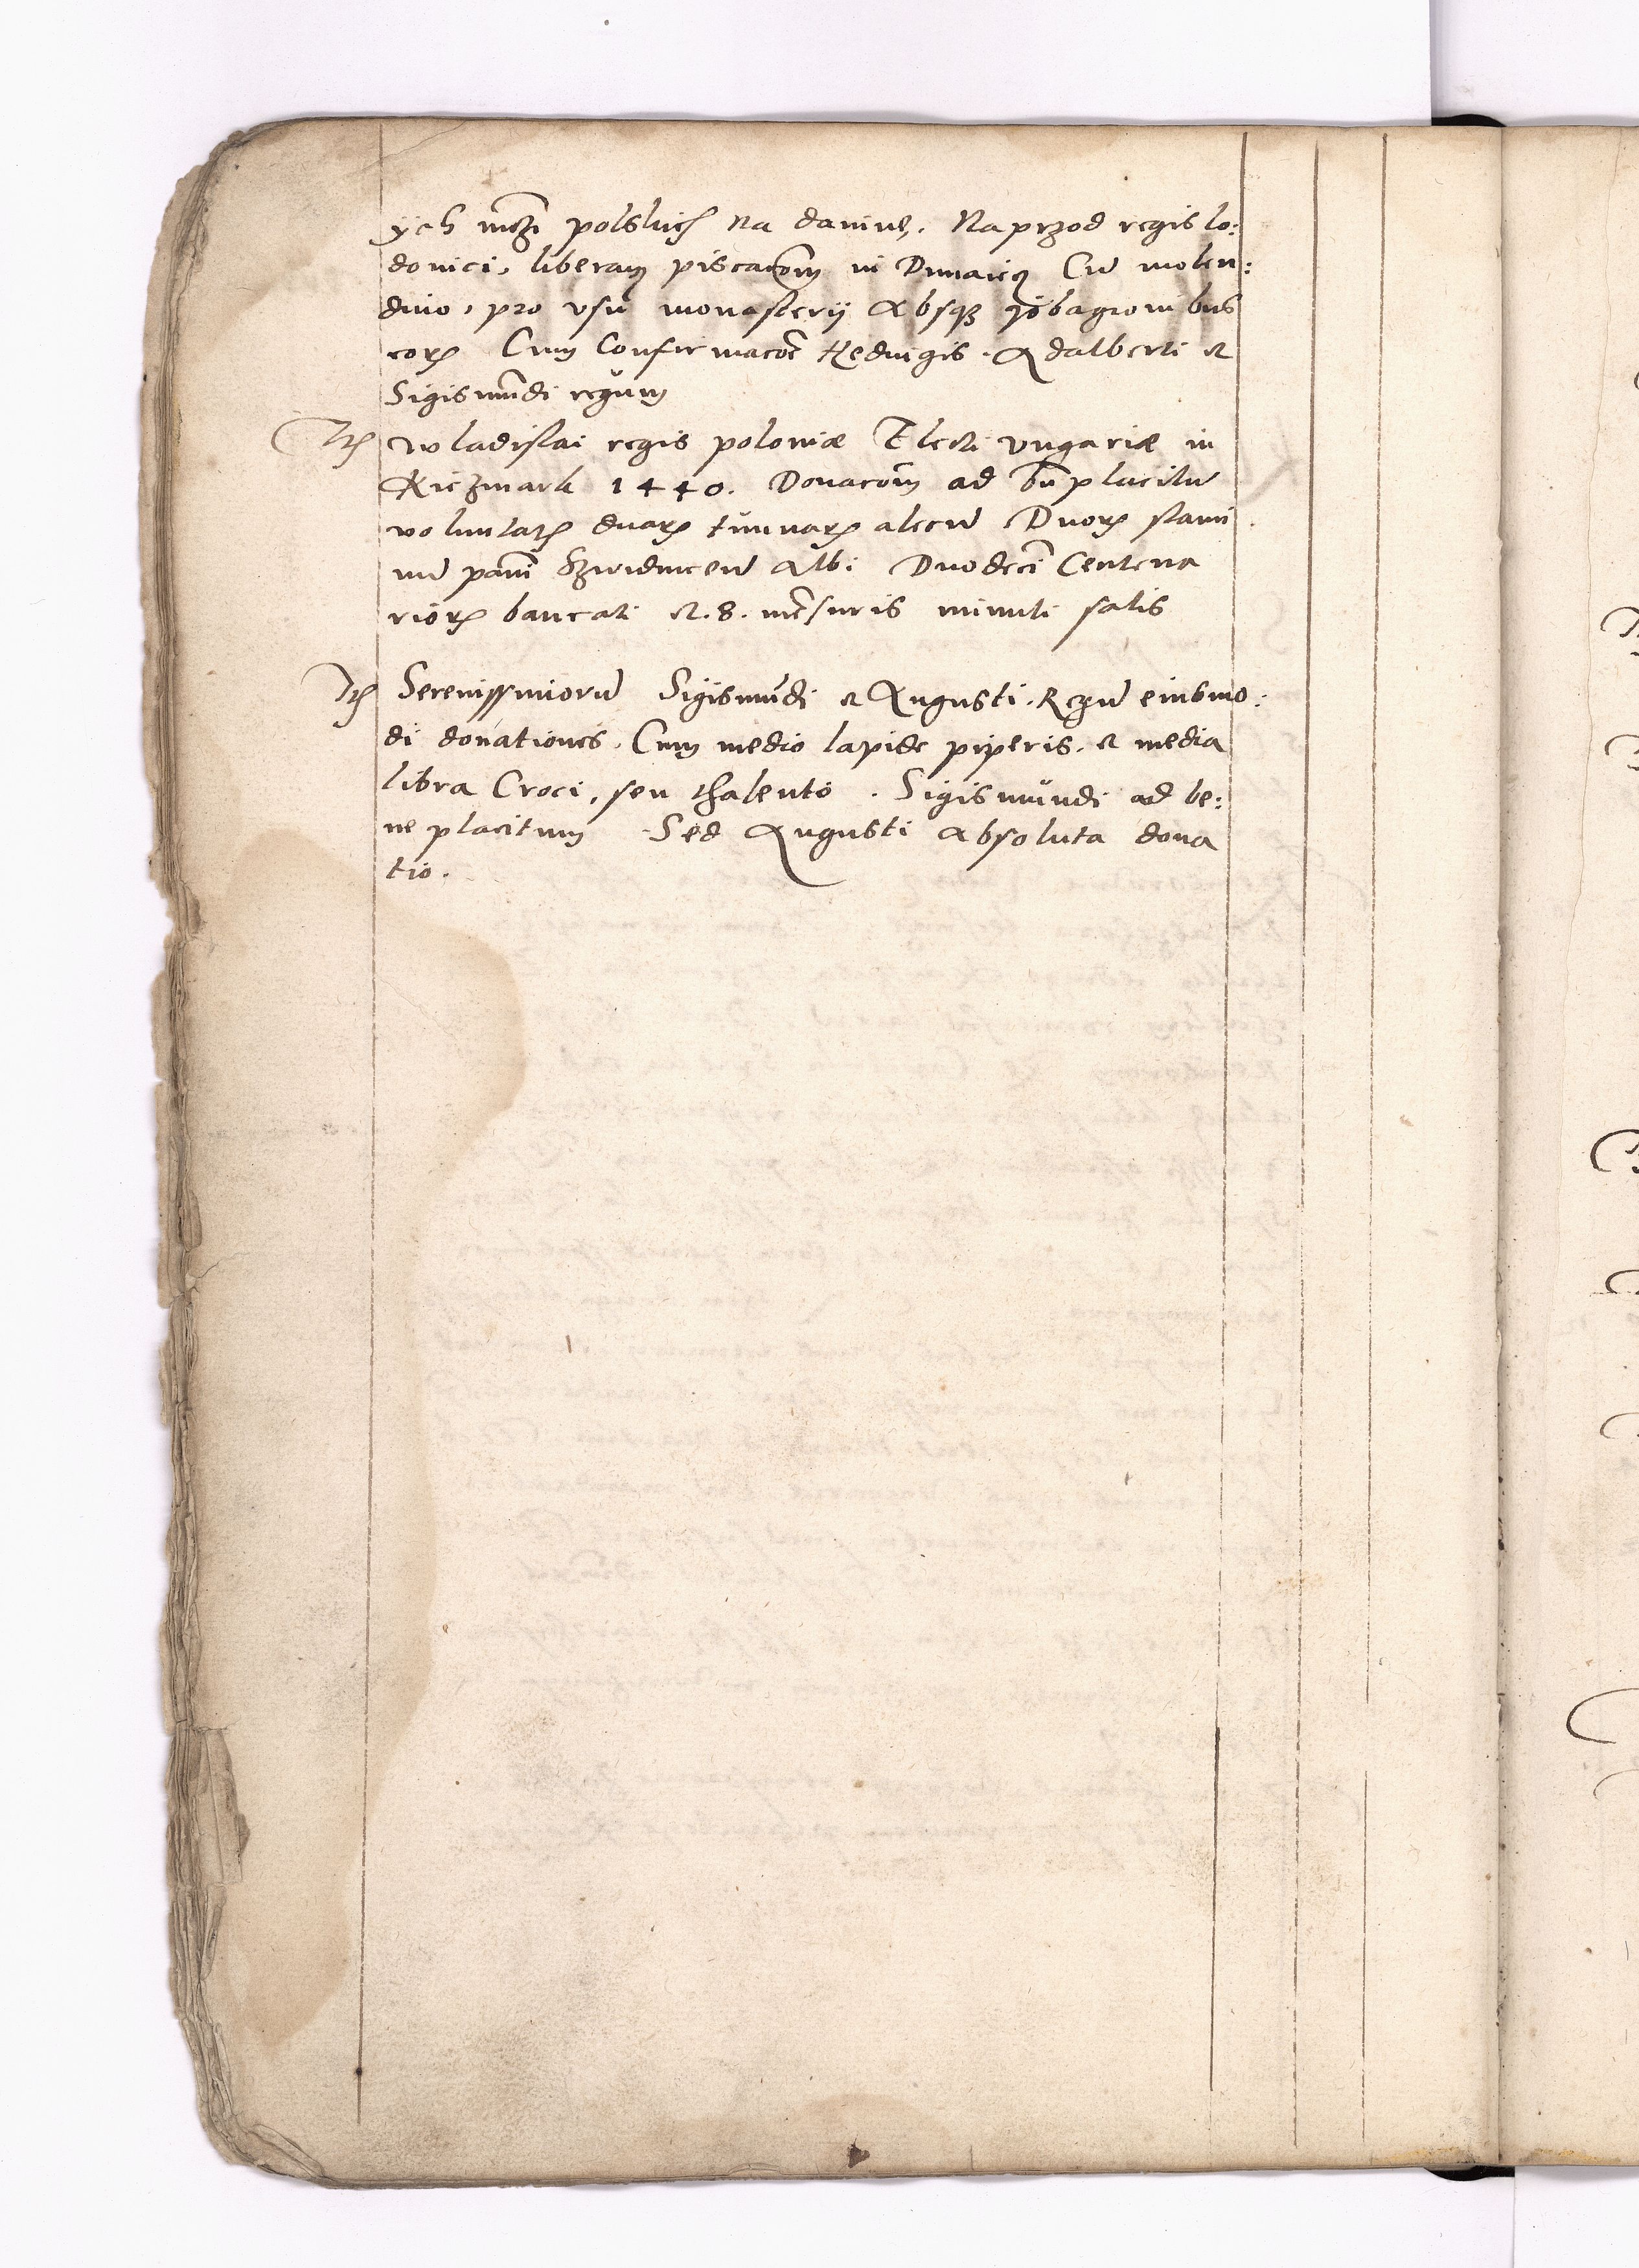 ych mczi polskich na daniny. Naprzod regis lo:
dovici, liberam piscacõm in Dunaiecz Cũ molen:
dino, pro vsu monasterij Absqȝ jobagionibus
eorꝝ Cum Confirmacõe Heduigis. Adalberti et
Sigismũdi regum
Itē wladislai regis poloniæ Electi vngariæ in
Kiezmark 1440. Donacõm ad bñplacitũ
voluntatꝭ duarꝝ tunnarꝝ alecũ Duorꝝ stami
nũ pañi Szwidnicen̄ Albi Duodeci Centena
riorꝝ bancati et .8. mẽsuris minuti salis
Itē Serenissimorũ Sigismũdi et Augusti. Regũ eiusmo:
di donationes. Cum medio lapide piperis. et media
libra Croci, seu thalento. Sigismundi ad be:
ne placitum Sed Augusti Absoluta dona
tio.